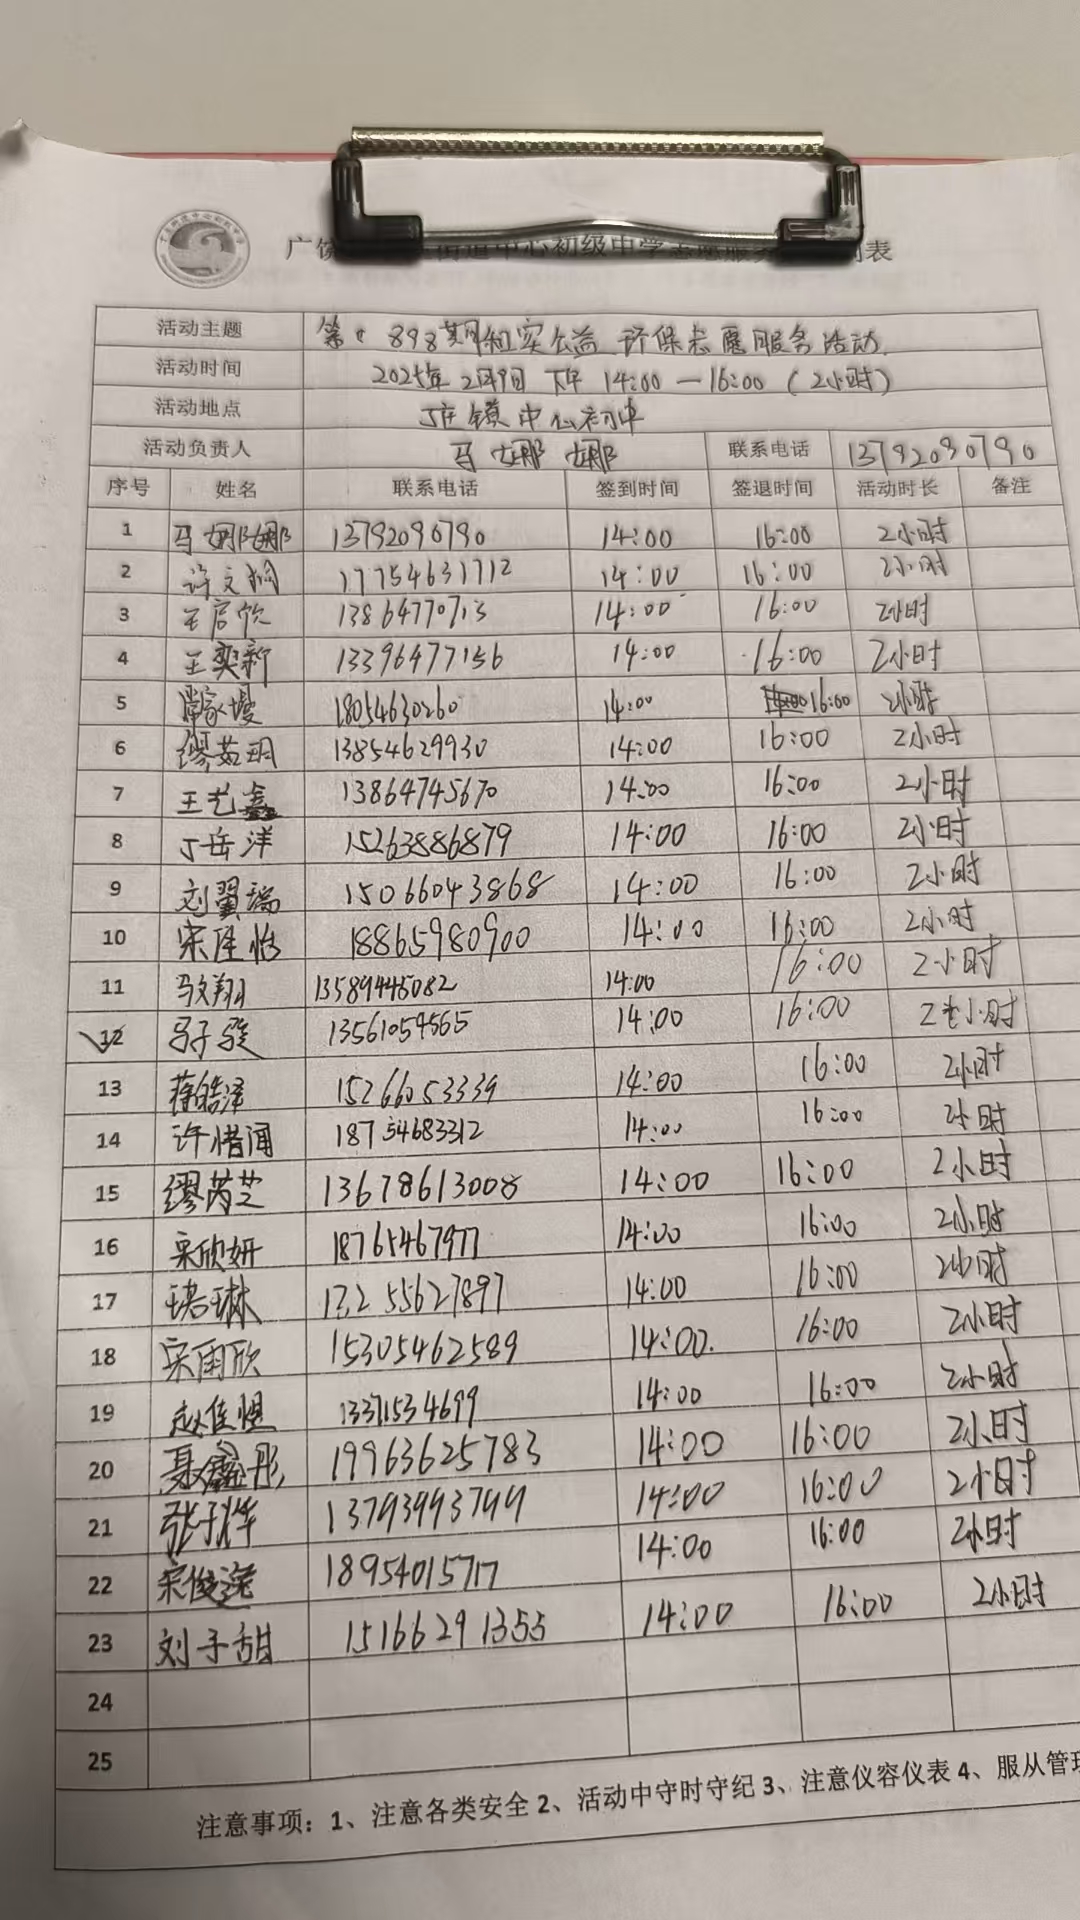 中心初级中学志愿服务
活动主题 第 898期和实公益 环保志愿服务活动.
活动时间 2025年2月9日 下午 14:00 — 16:00 (2小时)
活动地点 丁庄镇中心初中
活动负责人 马娜娜 联系电话 13792090790
序号 姓名 联系电话 签到时间 签退时间 活动时长 备注
1 马娜娜 13792090790 14:00 16:00 2小时
2 许文 17754631712 14:00 16:00 2小时
3 王启 13864770713 14:00 16:00 2小时
4 王奕新 13396477156 14:00 16:00 2小时
5 18054630260 14:00 16:00 2小时
6 缪茹玥 13854629930 14:00 16:00 2小时
7 王艺鑫 13864745670 14:00 16:00 2小时
8 丁岳洋 15263886879 14:00 16:00 2小时
9 刘翼瑞 15066043868 14:00 16:00 2小时
10 宋佳怡 18865980900 14:00 16:00 2小时
11 马文翔 13589445082 14:00 16:00 2小时
12 马子骏 13561059565 14:00 16:00 2小时
13 蒋皓泽 15266053339 14:00 16:00 2小时
14 许惜闻 18754683312 14:00 16:00 2小时
15 缪芮芝 13678613008 14:00 16:00 2小时
16 宋欣妍 18765467977 14:00 16:00 2小时
17 琳 13255627897 14:00 16:00 2小时
18 宋雨欣 15305462589 14:00. 16:00 2小时
19 赵佳 13371534699 14:00 16:00 2小时
20 聂鑫彤 19963625783 14:00 16:00 2小时
21 张子烨 13793993799 14:00 16:00 2小时
22 宋俊逸 18954015717 14:00 16:00 2小时
23 刘子甜 15166291355 14:00 16:00 2小时
24
25
注意事项：1、注意各类安全 2、活动中守时守纪 3、注意仪容仪表 4、服从管理